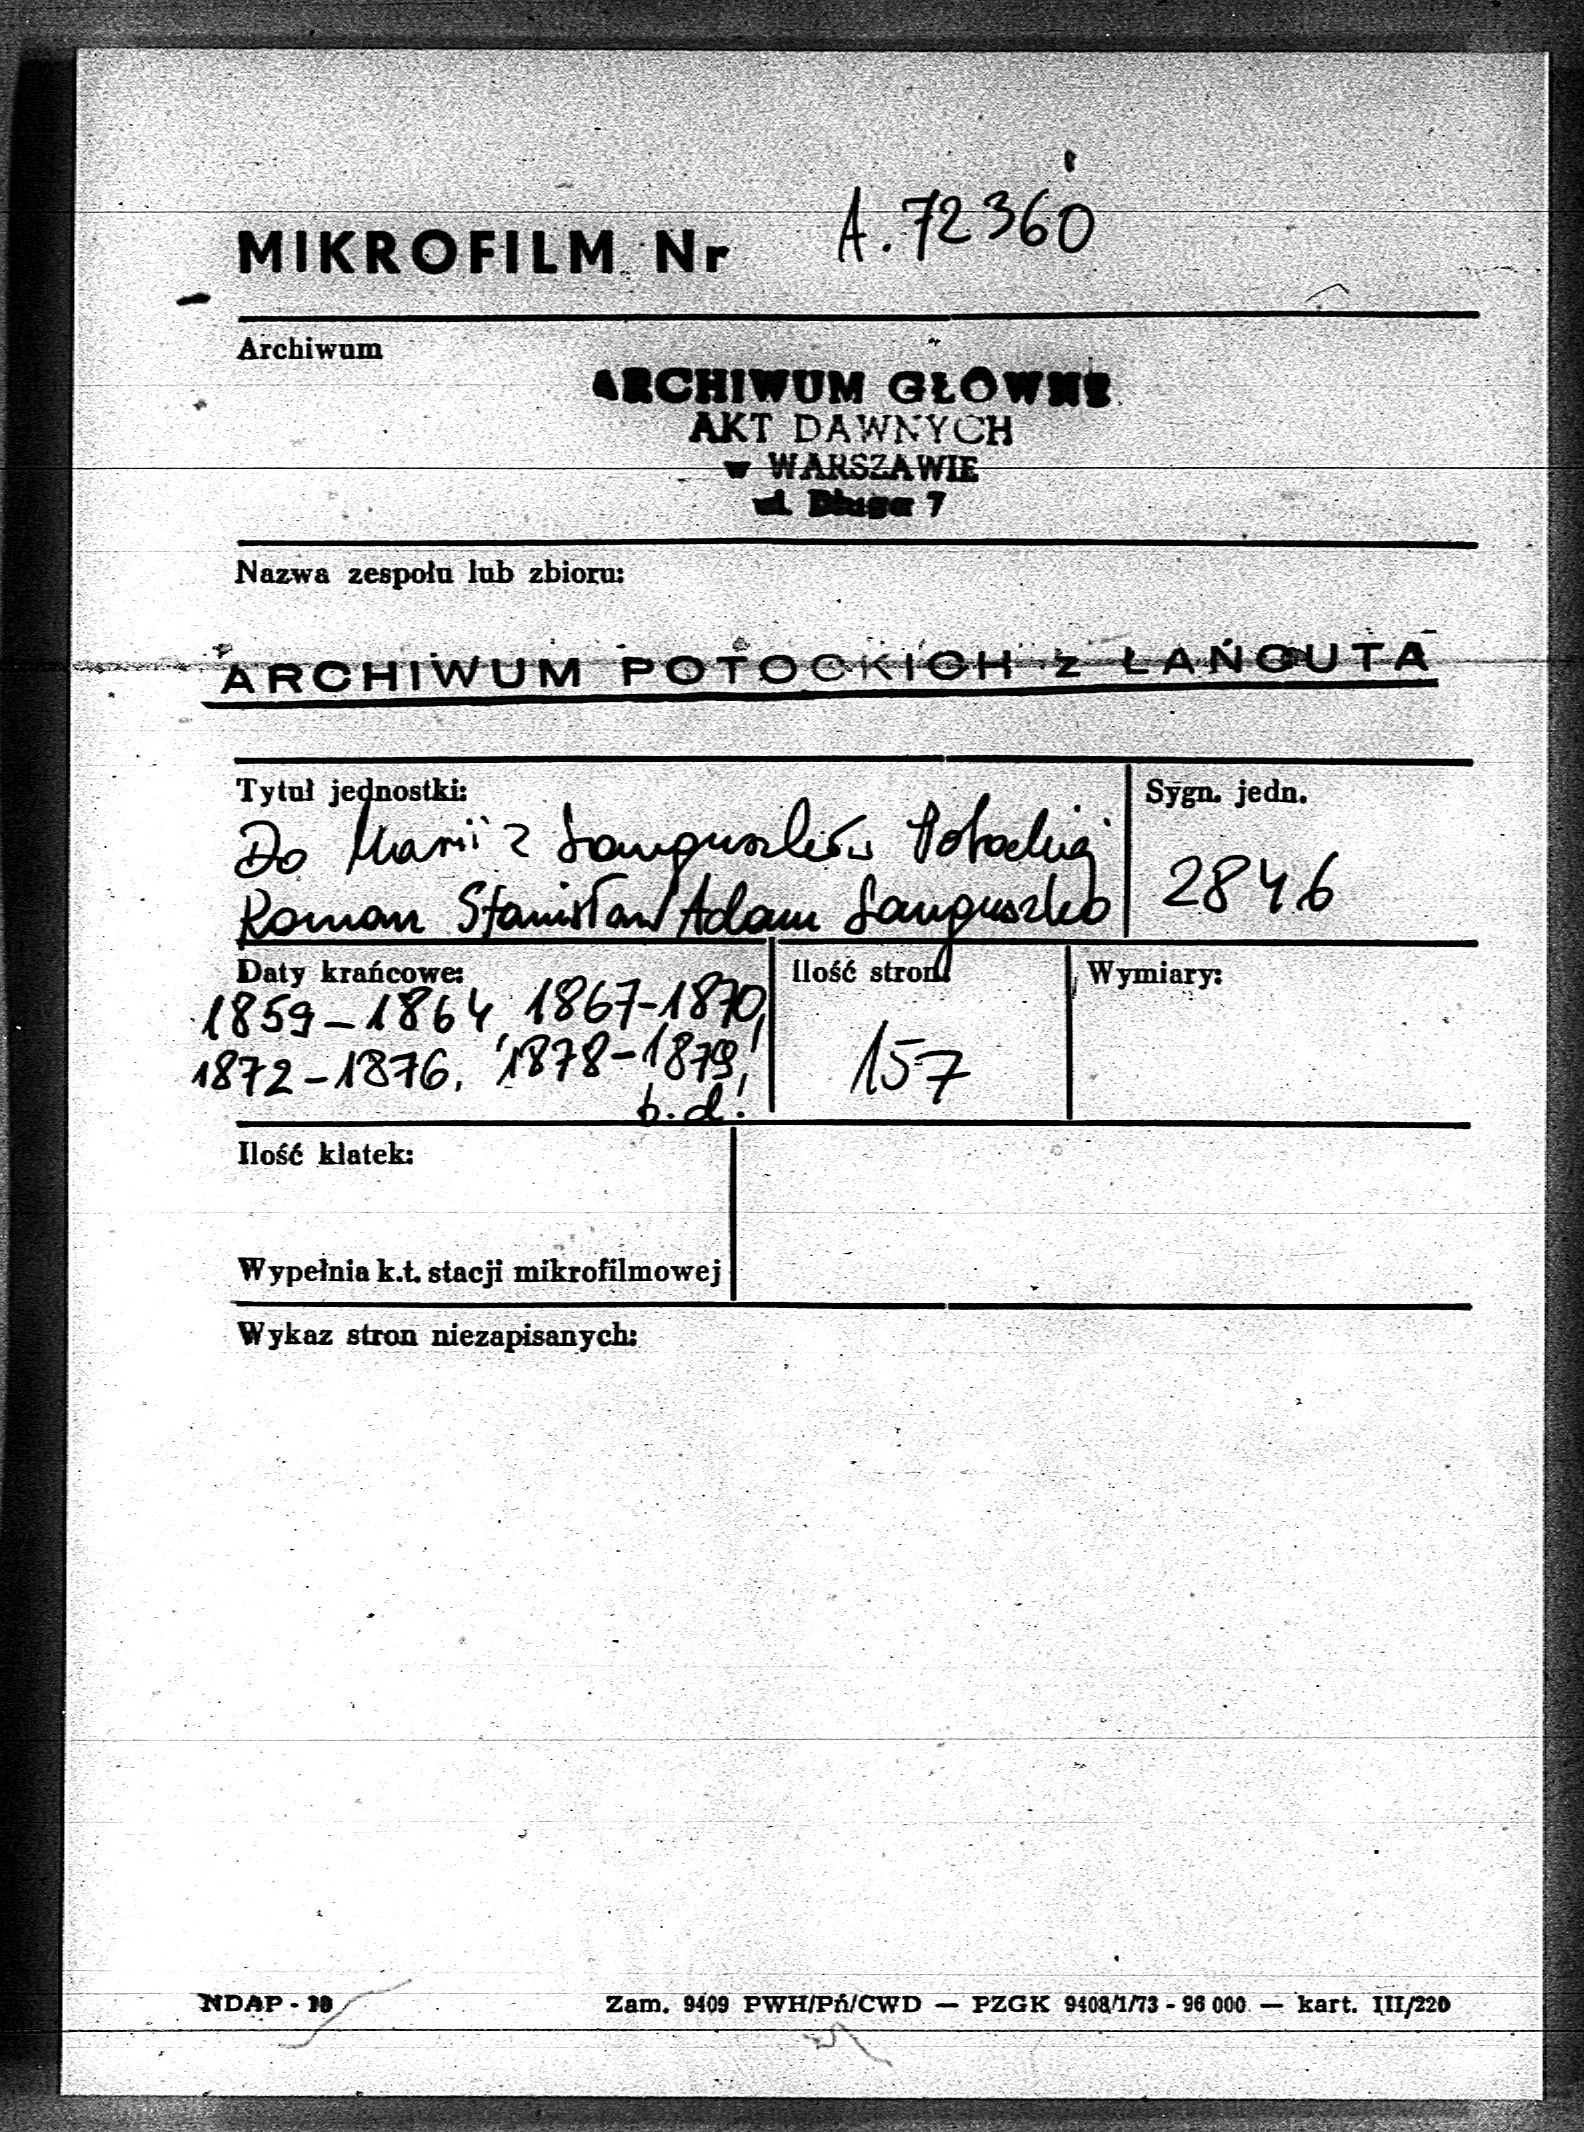 MIKROFILM Nr A.72360
Archiwum
ARCHIWUM GŁÓWNE
AKT DAWNYCH
w WARSZAWIE
ul. Długa 7
Nazwa zespołu lub zbioru:
ARCHIWUM POTOCKICH z ŁAŃCUTA
Tytuł jednostki:
Do Marii z Sanguszków Potockiej
Roman Stanisław Adam Sanguszko
Sygn. jedn.
2846
Daty krańcowe:
1859-1864, 1867-1870,
1872-1876, 1878-1879,
b.d.
Ilość stron
157
Wymiary:
Ilość klatek:
Wypełnia k.t. stacji mikrofilmowej
Wykaz stron niezapisanych:
NDAP -
Zam. 9409 PWH/Pń/CWD — PZGK 9408/1/73 - 96 000 — kart. III/220